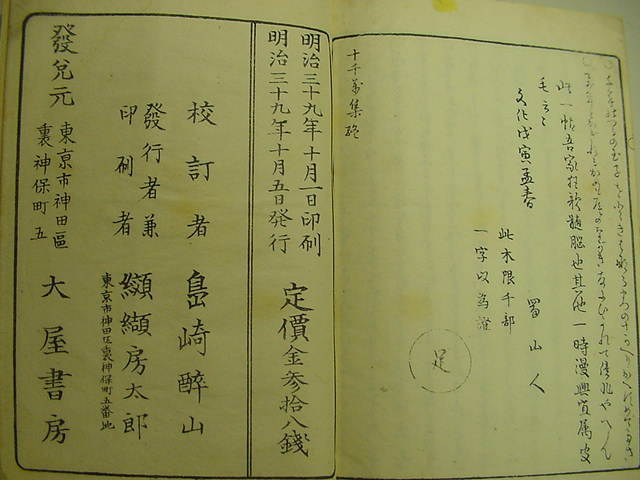 此一帖吾家狂歌髄脳也其他一時漫興皆属皮
毛云々
文化戊寅孟春
蜀山人
此本限千部
一字以為證
足
十千萬集終
明治三十九年十月一日印刷
明治三十九年十月五日発行
定價金参拾八錢
校訂者 島崎酔山
發行者兼
印刷者
纐纈房太郎
東京市神田区裏神保町五番地
發兌元
東京市神田區
裏神保町五
大屋書房